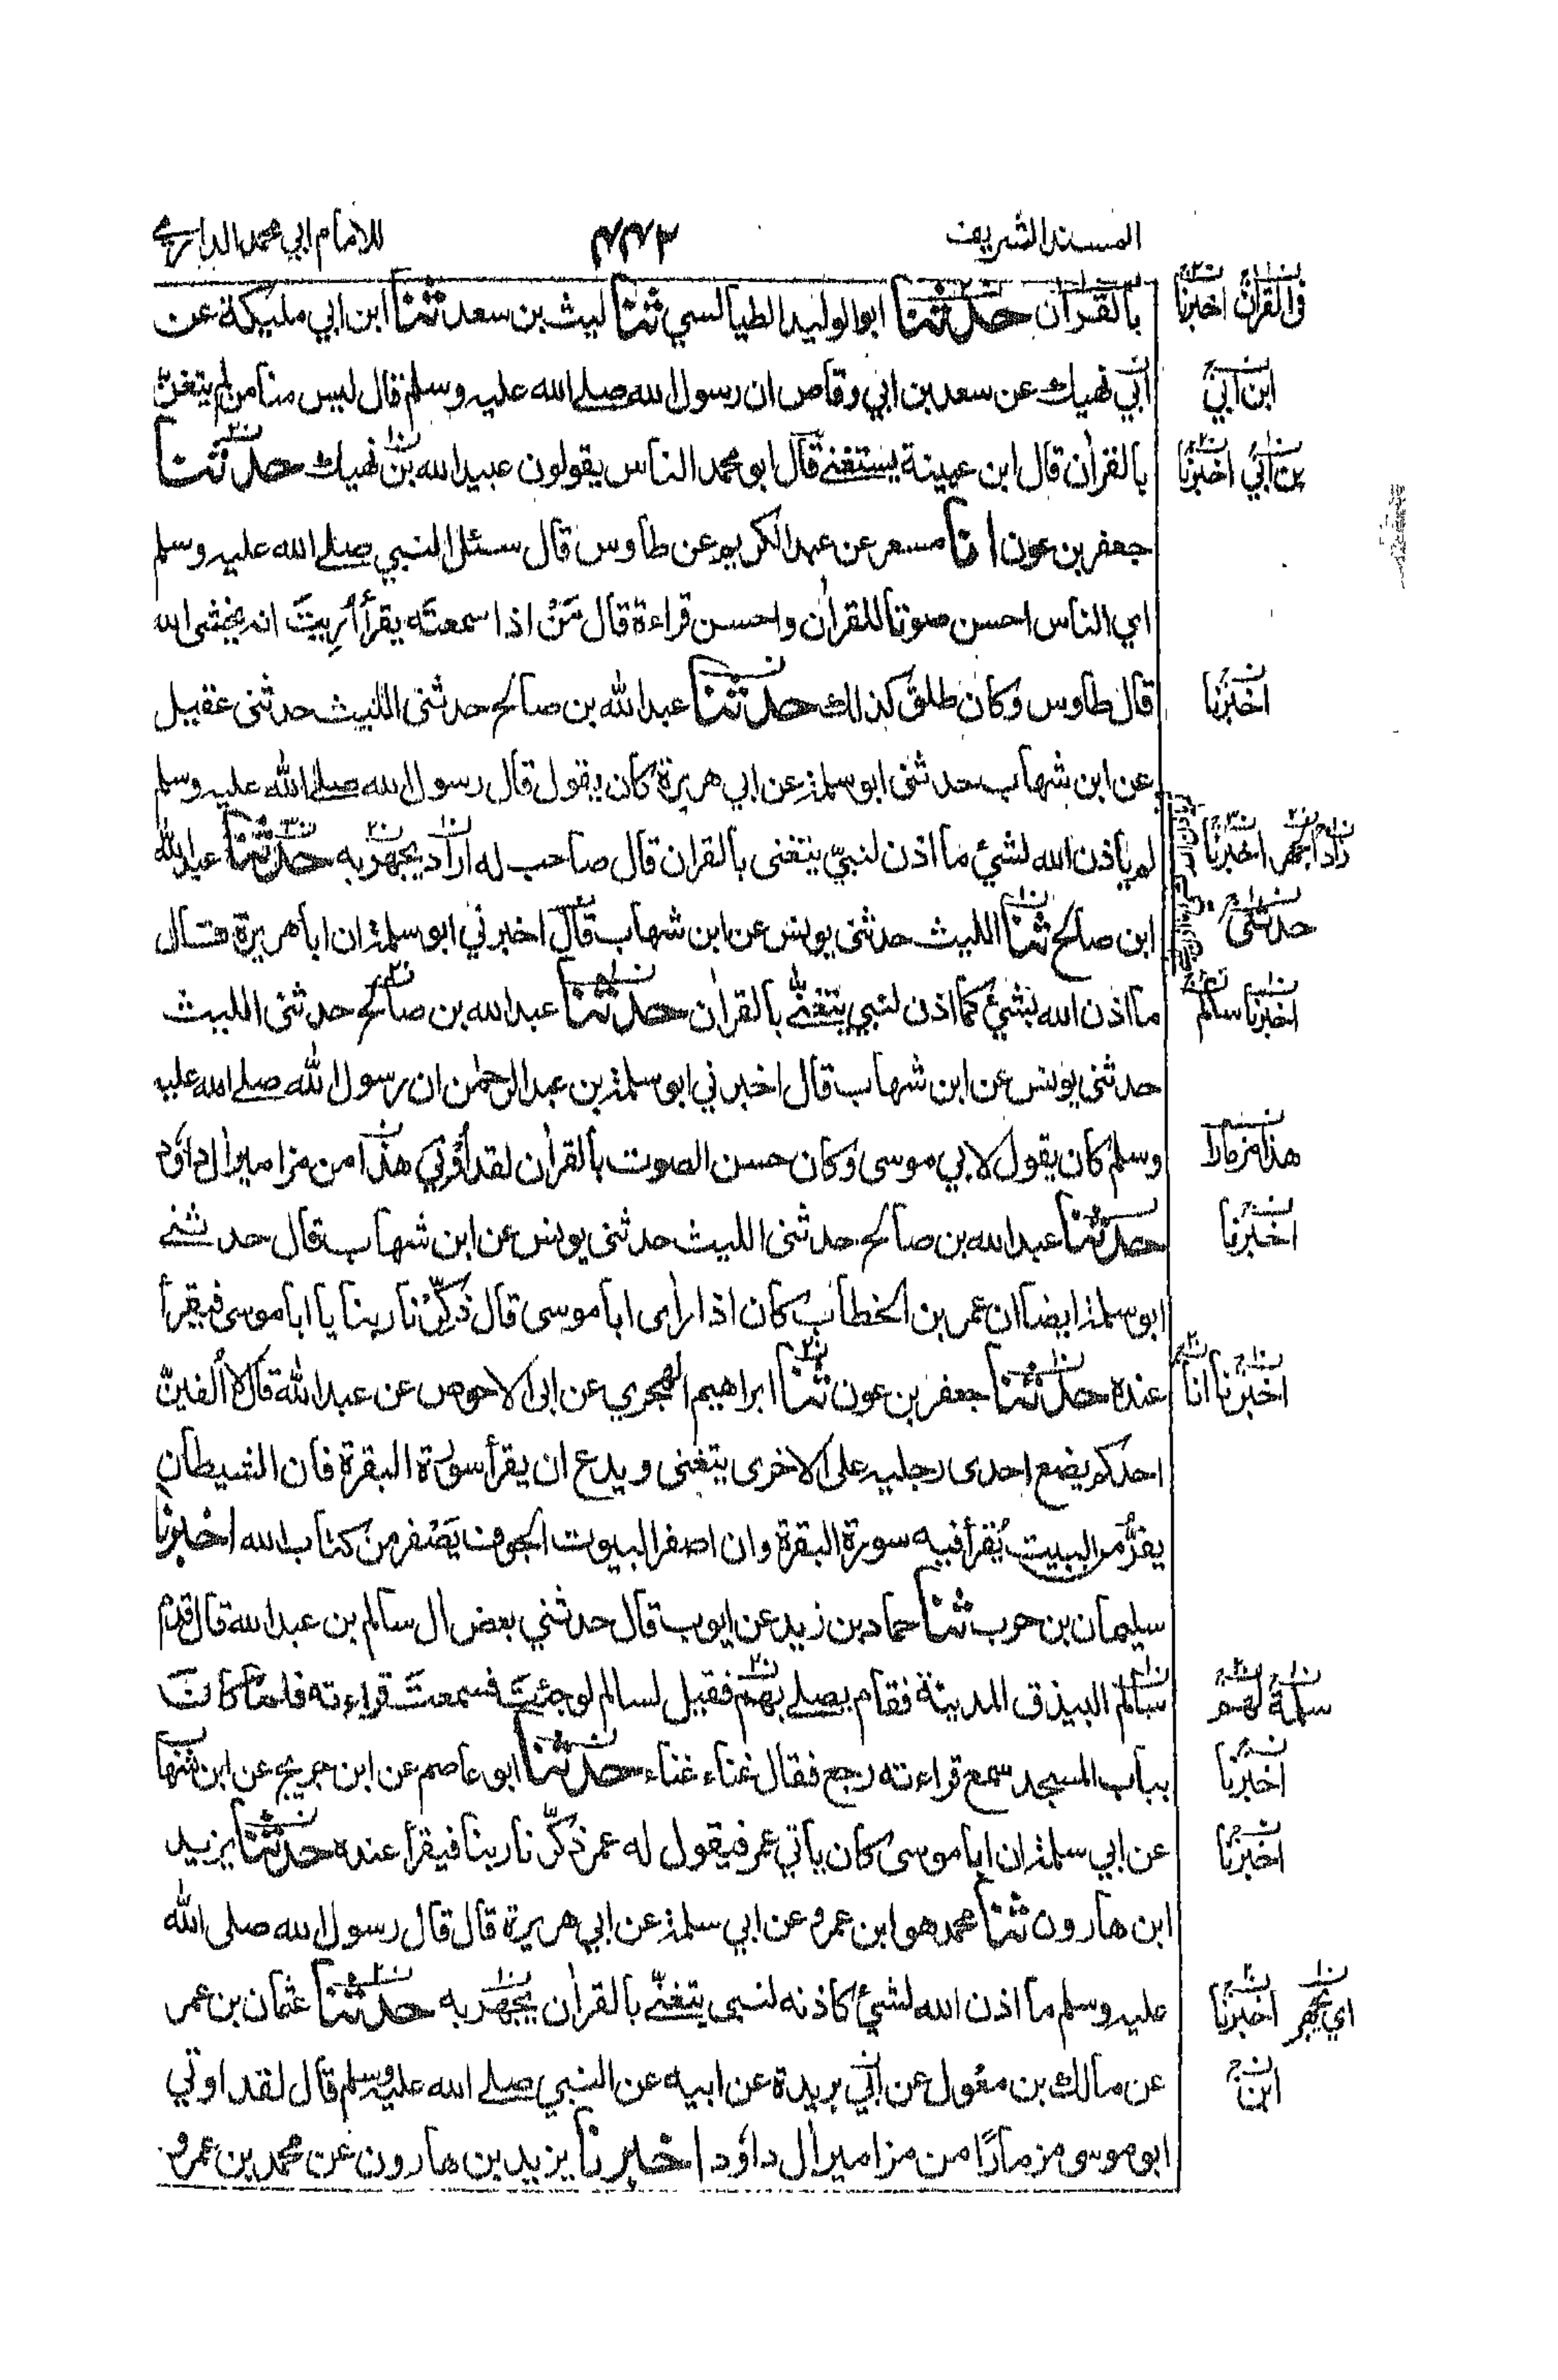 المسند الشريف ٤٤٢ للامام ابي محمد الدارمي
بالقرآن حدثنا ابو الوليد الطيالسي ثنا ليث بن سعد ثنا ابن ابي مليكة عن
ابي نهيك عن سعد بن ابي وقاص ان رسول الله صلے الله عليه وسلم قال ليس منا من لم يتغنّ
بالقرآن قال ابن عيينة يستغنے قال ابو محمد الناس يقولون عبيد الله بن نهيك حدثنا
جعفر بن عون انا مسعر عن عبد الكريم عن طاوس قال سئل النبي صلے الله عليه وسلم
اي الناس احسن صوتا للقرآن واحسن قراءة قال مَنْ اذا سمعتَه يقرأ أُرِيتَ انه يخشى الله
قال طاوس وكان طلق كذلك حدثنا عبد الله بن صالح حدثنى الليث حدثنى عقيل
عن ابن شهاب حدثنى ابو سلمة عن ابي هريرة كان يقول قال رسول الله صلے الله عليه وسلم
لم ياذن الله لشيئ ما اذن لنبيّ يتغنى بالقران قال صاحب له اراد يجهر به حدثنا عبد الله
ابن صالح ثنا الليث حدثنى يونس عن ابن شهاب قال اخبرني ابو سلمة ان ابا هريرة قال
ما اذن الله بشيئ كما اذن لنبي يتغنّے بالقرآن حدثنا عبد الله بن صالح حدثنى الليث
حدثنى يونس عن ابن شهاب قال اخبرني ابو سلمة بن عبد الرحمن ان رسول الله صلے الله عليه
وسلم كان يقول لابي موسى وكان حسن الصوت بالقرآن لقد أُوتي هذا من مزامير ال داؤد
حدثنا عبد الله بن صالح حدثنى الليث حدثنى يونس عن ابن شهاب قال حدثنے
ابو سلمة ايضا ان عمر بن الخطاب كان اذا رأى ابا موسى قال ذكّرنا ربنا يا ابا موسى فيقرأ
عنده حدثنا جعفر بن عون ثنا ابراهيم الهجري عن ابى الاحوص عن عبد الله قال لا أُلفينّ
احدكم يضع احدى رجليه على الاخرى يتغنى ويدع ان يقرأ سورة البقرة فان الشيطان
يفرّ من البيت يُقرأ فيه سورة البقرة وان اصفر البيوت الجوف يَصْفر من كتاب الله اخبرنا
سليمان بن حرب ثنا حماد بن زيد عن ايوب قال حدثني بعض ال سالم بن عبد الله قال قدم
سالم البيذق المدينة فقام يصلے بهم فقيل لسالم لو جئتَ فسمعتَ قراءته فلمّا كان
بباب المسجد سمع قراءته رجع فقال غناء غناء حدثنا ابو عاصم عن ابن جريج عن ابن شهاب
عن ابي سلمة ان ابا موسى كان ياتي عمر فيقول له عمر ذكّرنا ربنا فيقرأ عنده حدثنا يزيد
ابن هارون ثنا محمد هو ابن عمرو عن ابي سلمة عن ابي هريرة قال قال رسول الله صلى الله
عليه وسلم ما اذن الله لشيئ كاذنه لنبى يتغنّے بالقرآن يجهر به حدثنا عثمان بن عمر
عن مالك بن مغول عن ابي بريدة عن ابيه عن النبي صلے الله عليه وسلم قال لقد اوتي
ابو موسى مزمارًا من مزامير ال داؤد اخبرنا يزيد بن هارون عن محمد بن عمرو
فى القرآن اخبرنا
ابن ابي
بن ابي اخبرنا
اخبرنا
زاد يجهر اخبرنا
حدثنى
اخبرنا سالم
هذا مزمارا
اخبرنا
اخبرنا انا
سلمة لهم
اخبرنا
اخبرنا
اي يجهر اخبرنا
ابن